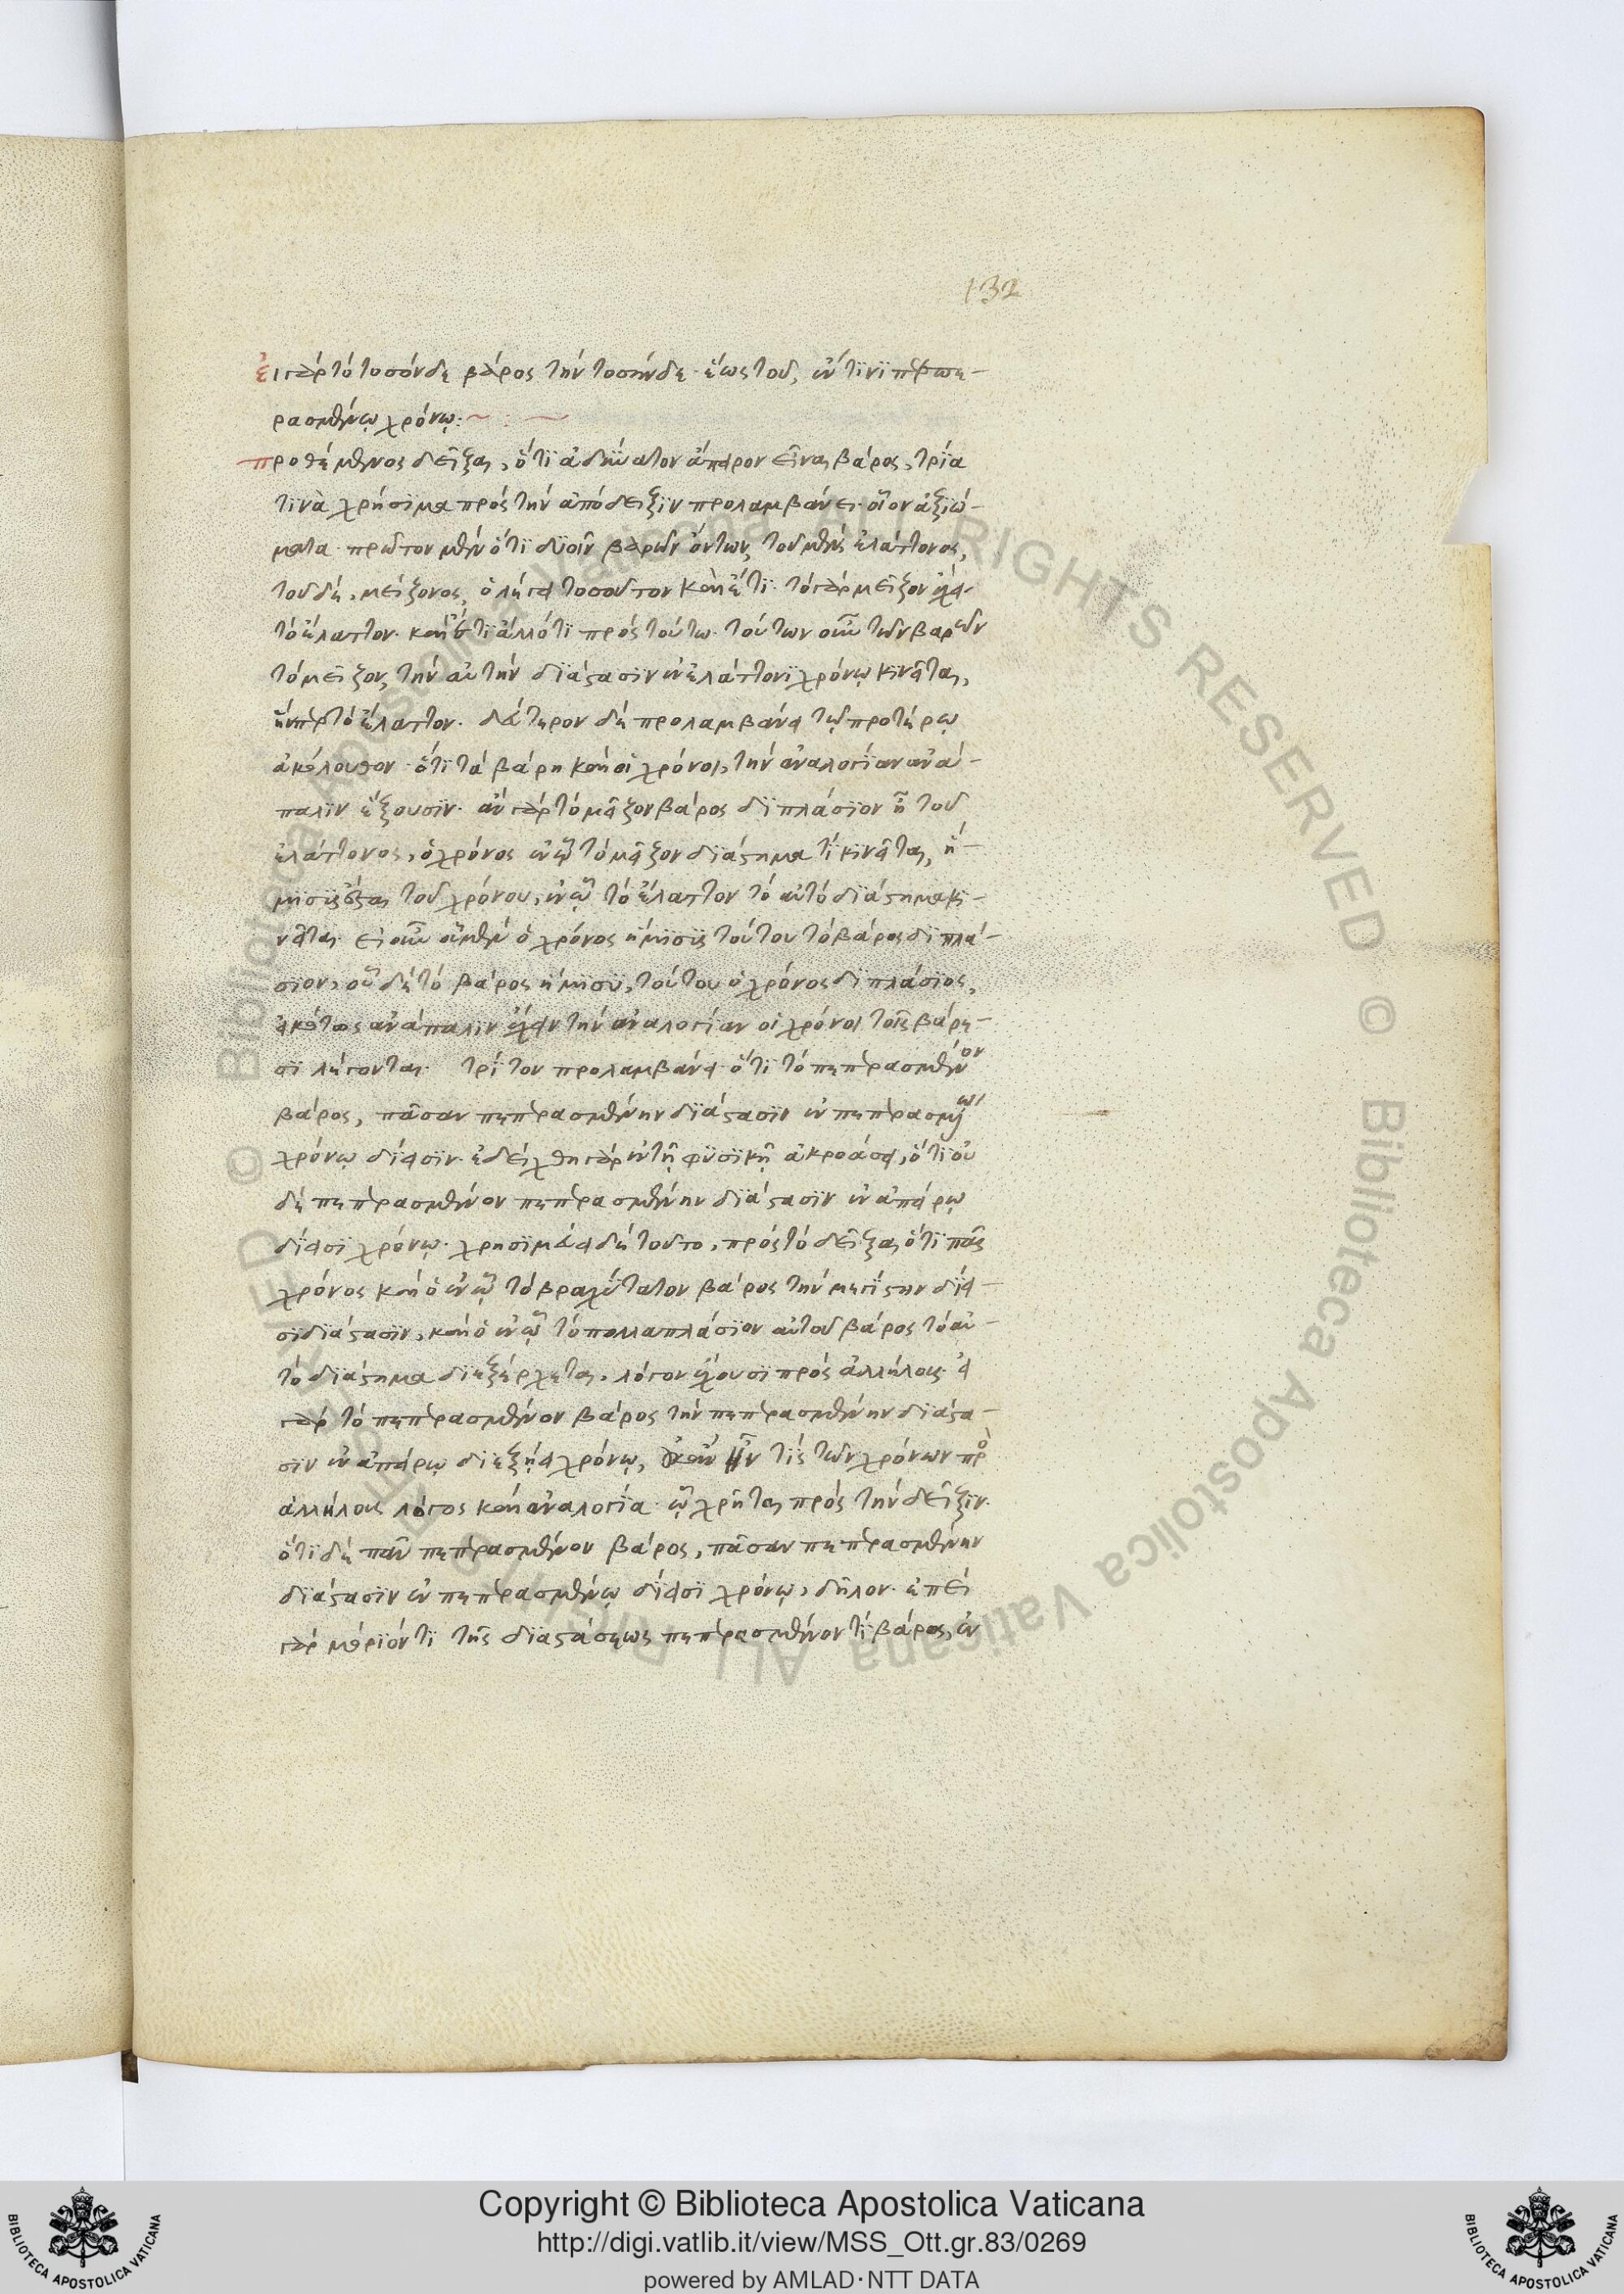 132
εἰ γὰρ τὸ τοσόνδε βάρος τὴν τοσήνδε· ἕως τοῦ, ἐν τινὶ πεπε-
ρασμένῳ χρόνῳ:
προθέμενος δεῖξαι, ὅτι ἀδύνατον ἄπειρον εἶναι βάρος, τρία
τινὰ χρήσιμα πρὸς τὴν ἀπόδειξιν προλαμβάνει· οἷον ἀξιώ-
ματα· πρῶτον μὲν ὅτι δυοῖν βαρῶν ὄντων, τοῦ μὲν ἐλάττονος,
τοῦ δὲ, μείζονος, ὁ λέγει τοσοῦτον καὶ ἔτι· τὸ γὰρ μεῖζον ἔχει
τὸ ἔλαττον· καὶ ἔτι ἄλλό τι πρὸς τούτω· τούτων οὖν τῶν βαρῶν
τὸ μεῖζον, τὴν αὐτὴν διάστασιν ἐν ἐλάττονι χρόνῳ κινεῖται,
ἤπερ τὸ ἔλαττον· δεύτερον δὲ προλαμβάνει τῷ προτέρῳ
ἀκόλουθον· ὅτι τὰ βάρη καὶ οἱ χρόνοι, τὴν ἀναλογίαν ἀνά-
παλιν ἕξουσιν· ἂν γὰρ τὸ μεῖζον βάρος διπλάσιον ᾖ τοῦ
ἐλάττονος, ὁ χρόνος ἐν ᾧ τὸ μεῖζον διάστημα τί κινεῖται, ἥ-
μισυς ἔσται τοῦ χρόνου, ἐν ᾧ τὸ ἔλαττον τὸ αὐτὸ διάστημα κι-
νεῖται· εἰ οὖν οὗ μὲν ὁ χρόνος ἥμισυς τούτου τὸ βάρος διπλά-
σιον, οὗ δὲ τὸ βάρος ἥμισυ, τούτου ὁ χρόνος διπλάσιος,
εἰκότως ἀνάπαλιν ἔχειν τὴν ἀναλογίαν οἱ χρόνοι τοῖς βάρε-
σι λέγονται· τρίτον προλαμβάνει ὅτι τὸ πεπερασμένον
βάρος, πᾶσαν πεπερασμένην διάστασιν ἐν πεπερασμένῳ
χρόνῳ δίεισιν· ἐδείχθη γὰρ ἐν τῇ φυσικῇ ἀκροάσει, ὅτι οὐ
δὲ πεπερασμένον πεπερασμένην διάστασιν ἐν ἀπείρῳ
δίεισι χρόνῳ· χρησιμεύει δὲ τοῦτο, πρὸς τὸ δεῖξαι ὅτι πᾶς
χρόνος καὶ ὁ ἐν ᾧ τὸ βραχύτατον βάρος τὴν μεγίστην δίει-
σι διάστασιν, καὶ ὁ ἐν ᾧ τὸ πολλαπλάσιον αὐτοῦ βάρος τὸ αὐ-
τὸ διάστημα διεξέρχεται, λόγον ἔχουσι πρὸς ἀλλήλους· εἰ
γὰρ τὸ πεπερασμένον βάρος τὴν πεπερασμένην διάστα-
σιν ἐν ἀπείρῳ διεξῄει χρόνῳ, οὐκ ἂν ἦν τίς τῶν χρόνων πρὸ
ἀλλήλους λόγος καὶ ἀναλογία· ᾧ χρῆται πρὸς τὴν δεῖξιν·
ὅτι δὲ πᾶν πεπερασμένον βάρος, πᾶσαν πεπερασμένην
διάστασιν ἐν πεπερασμένῳ δίεισι χρόνῳ, δῆλον· ἐπεὶ
γὰρ μόριόν τι τῆς διαστάσεως πεπερασμένον τί βάρος, ἐν
Copyright © Biblioteca Apostolica Vaticana
http://digi.vatlib.it/view/MSS_Ott.gr.83/0269
powered by AMLAD·NTT DATA